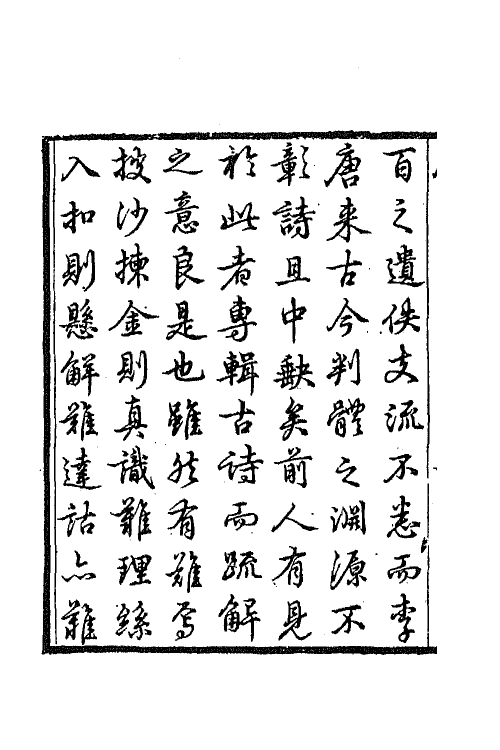 百之遺佚支流不悉而李
唐来古今判體之淵源不
彰詩且中缺矣前人有見
於此者專輯古詩而疏解
之意良是也雖然有難焉
披沙揀金則真識難理繇
入扣則懸解難達詁亦難